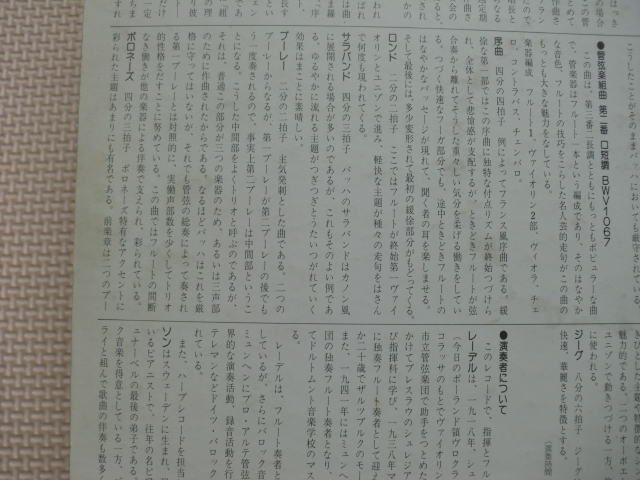 ●管弦楽組曲 第二番 ロ短調 BWV1067
この曲は、第三番ニ長調とともにもっともポピュラーな曲
で、管楽器はフルート一本という編成であり、そのはなやか
な音色、フルートの技巧をこらした名人芸的走句がこの曲の
もっとも大きな魅力をなしている。
楽器編成 フルート1、ヴァイオリン2部、ヴィオラ、チェ
ロ、コントラバス、チェンバロ。
序曲 四分の四拍子 例によってフランス風序曲である。緩
徐な第一部ではこの序曲に独特な付点リズムが終始つづけら
れ、全体として悲愴感が支配するが、ときどきフルートが弦
合奏から離れてそうした重々しい気分を柔げる働きをしてい
る。つづく快速なフーガ部分でも、途中ときどきフルートの
はなやかなパッセージが現れて、聞く者の耳を楽しませる。
そして最後には、多少変形されて最初の緩徐部分がもどってくる。
ロンド 二分の二拍子 ここではフルートが終始第一ヴァイ
オリンとユニゾンで進み、軽快な主題が種々の走句をはさん
で何度も現われてくる。
サラバンド 四分の三拍子 バッハのサラバンドはカノン風
に展開される場合が多いのであるが、これもそのよい例であ
る。ゆるやかに流れる主題がつぎつぎとうたいつがれていく
効果はまことに素晴しい。
ブーレー 二分の二拍子 主気発剌とした曲である。二つの
ブーレーからなるが、第一ブーレーが第二ブーレーの後でも
う一度奏されるので、事実上第二ブーレーは中間部というこ
とになる。こうした中間部をよくトリオと呼ぶのであるが、
それは、普通この部分が三つの楽器のため、あるいは三声部
のために作曲されたからである。なるほどバッハはこれを厳
格に守ってはいないが、それでも管弦の総奏によって奏され
る第一ブーレーとは対照的に、実働声部数を少くしてトリオ
的性格をだすことに努めている。この曲ではフルートの間断
なき働きが他の楽器による伴奏で支えられ、彩られている。
ポロネーズ 四分の三拍子 ポロネーズ特有なアクセントに
彩られた主題はあまりにも有名である。前楽章は二つのブー
魅力的である。二つのオーボエ
ユニゾンで動きつづける一方、
に使われる。
ジーグ 八分の六拍子 ジーグ
快速、華麗さを特徴とする。
●演奏者について
このレコードで、指揮とフル
レーデルは、一九一八年、シュ
(今日のポーランド領ヴロクラ
コラッサのもとでヴァイオリン
市立管弦楽団で助手をつとめた
かけてブレスラウのシュレジア
び指揮科に学び、一九三八年マ
に独奏フルート奏者として迎え
か二十歳でザルツブルクのモー
また、一九四一年にはミュンヘ
団の独奏フルート奏者となり、
てドルトムント音楽学校のマス
レーデルは、フルート奏者と
しているが、さらにバロック音
ミュンヘンにプロ・アルテ管弦
界的な演奏活動、録音活動を行
テレマンなどドイツ・バロック
れている。
また、ハープシコードを担当
ソンはスウェーデンに生まれ、
いるピアニストで、往年の名ピ
ュナーベルの最後の弟子である
ク音楽を得意としている一方、
ライと組んで歌曲の伴奏も数多く